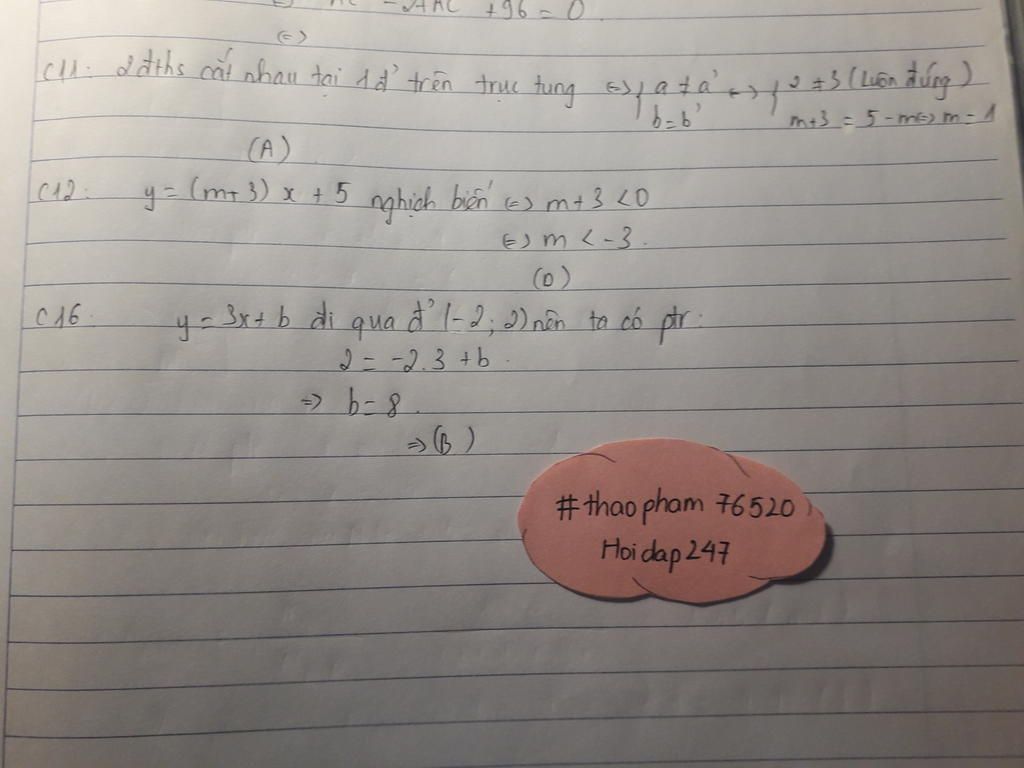 +96 = 0.
(=)
C11: 2 đths cắt nhau tại 1 đ' trên trục tung <=> { a ≠ a' <=> { 2 ≠ 3 (Luôn đúng)
b = b' m+3 = 5 - m <=> m = 1
(A)
C12: y = (m+3) x + 5 nghịch biến <=> m + 3 < 0
<=> m < -3.
(D)
C16: y = 3x + b đi qua đ' (-2; 2) nên ta có ptr:
2 = -2.3 + b.
=> b = 8.
=> (B)
#thaopham 76520
Hoidap247